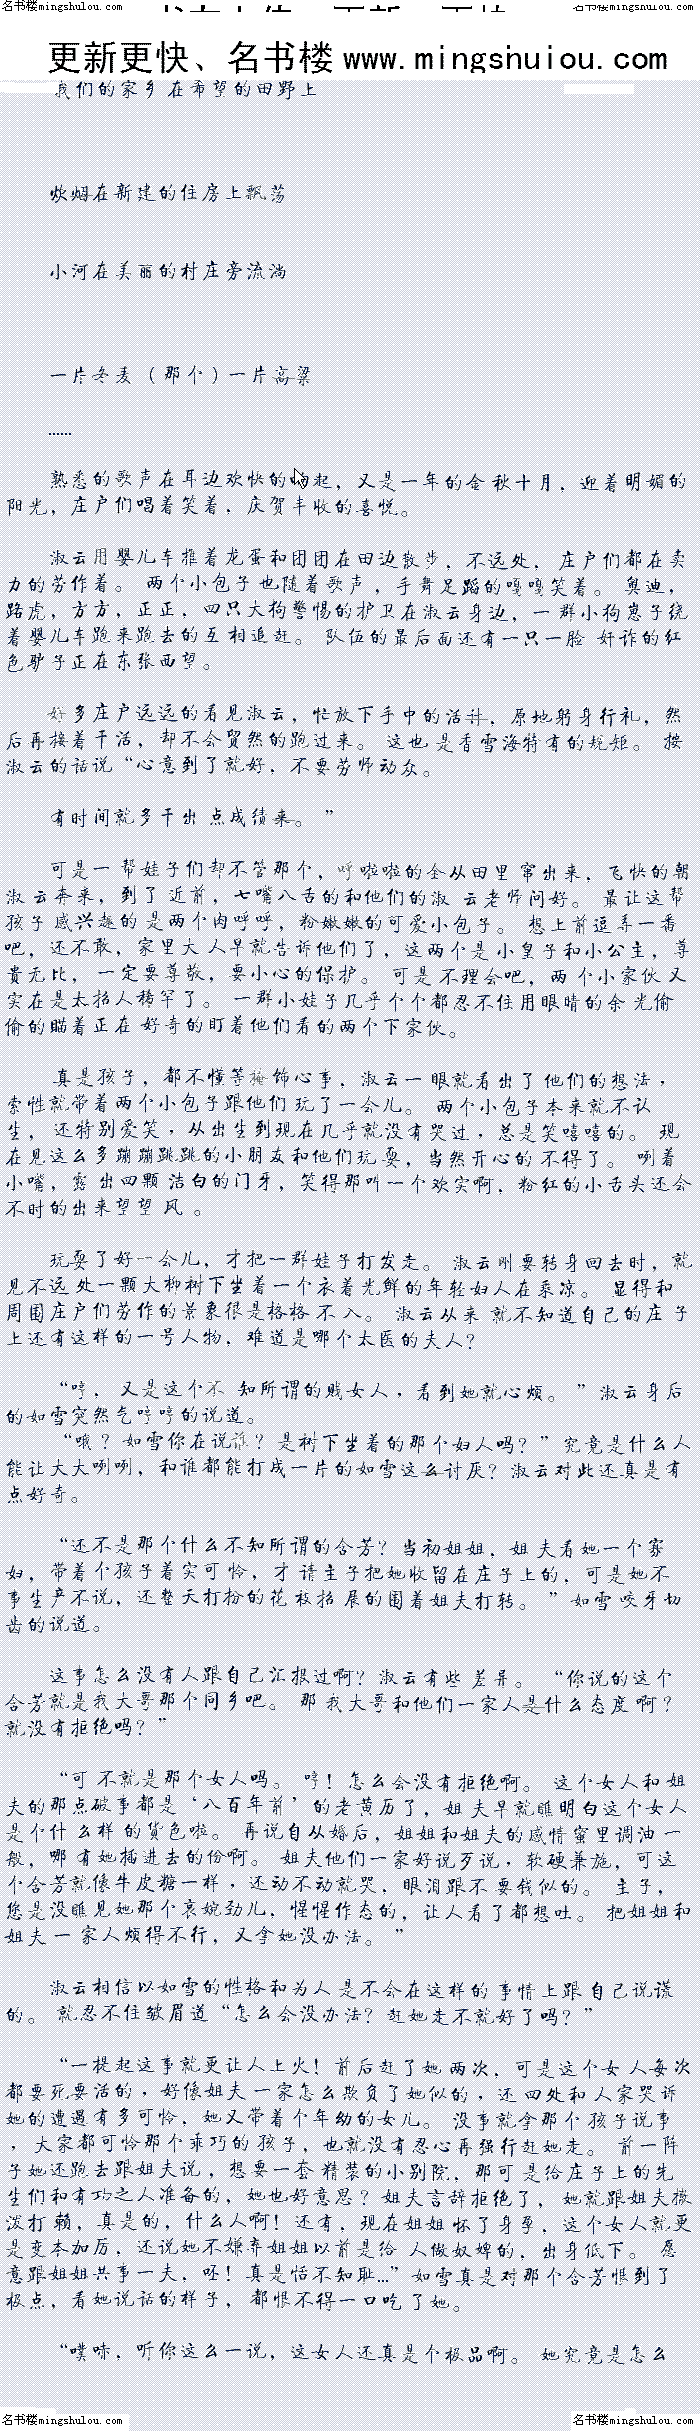 名书楼mingshuiou.com 名书楼mingshuiou.com
更新更快、名书楼 www.mingshuiou.com
我们的家乡在希望的田野上
炊烟在新建的住房上飘荡
小河在美丽的村庄旁流淌
一片冬麦（那个）一片高粱
……
熟悉的歌声在耳边欢快的响起，又是一年的金秋十月，迎着明媚的
阳光，庄户们唱着笑着，庆贺丰收的喜悦。
淑云用婴儿车推着龙蛋和团团在田边散步，不远处，庄户们都在卖
力的劳作着。 两个小包子也随着歌声，手舞足蹈的嘎嘎笑着。 奥迪，
路虎，方方，正正，四只大狗警惕的护卫在淑云身边，一群小狗崽子绕
着婴儿车跑来跑去的互相追赶。 队伍的最后面还有一只一脸 奸诈的红
色驴子正在东张西望。
好多庄户远远的看见淑云，忙放下手中的活计，原地躬身行礼，然
后再接着干活，却不会贸然的跑过来。 这也是香雪海特有的规矩。 按
淑云的话说“心意到了就好，不要劳师动众。
有时间就多干出 点成绩来。 ”
可是一 帮娃子们却不管那个，呼啦啦的全从田里 窜出来，飞快的朝
淑云奔来，到了近前，七嘴八舌的和他们的淑 云老师问好。 最让这帮
孩子感兴趣的是两个肉呼呼，粉嫩嫩的可爱小包子。 想上前逗弄一番
吧，还不敢，家里大人早就告诉他们了，这两个是小皇子和小公主，尊
贵无比，一定要尊敬，要小心的保护。 可是不理会吧，两个小家伙又
实在是太招人稀罕了。 一群小娃子几乎个个都忍不住用眼睛的余 光偷
偷的瞄着正在 好奇的盯着他们看的两个下家伙。
真是孩子，都不懂等掩饰心事，淑云一眼就看出了他们的想法，
索性就带着两个小包子跟他们玩了一会儿。 两个小包子本来就不认
生， 还特别爱笑，从出生到现在几乎就没有哭过，总是笑嘻嘻的。 现
在见这么多蹦蹦跳跳的小朋友和他们玩耍，当然开心的不得了。 咧着
小嘴，露 出四颗 洁白的门牙，笑得那叫一个欢实啊，粉红的小舌头还会
不时的出来望望 风 。
玩耍了好一会儿，才把一群娃子打发走。 淑云刚要转身回去时，就
见不远处一颗大柳树下坐着一个衣着光鲜的年轻妇人在乘凉。 显得和
周围庄户们劳作的景象很是格格不入。 淑云从来 就不知道自己的庄子
上还有这样的一号人物，难道是哪个太医的夫人？
“哼， 又是这个不 知所谓的贱女人，看到她就心烦。 ”淑云身后
的如雪突然气哼哼的说道。
“哦？如雪你在说谁？是树下坐着的那个妇人吗？”究竟是什么人
能让大大咧咧，和谁都能打成一片的如雪这么讨厌？淑云对此还真是有
点好奇。
“还不是那个什么不知所谓的含芳？当初姐姐，姐夫看她一个寡
妇，带着个孩子着实可怜，才请主子把她收留在庄子上的，可是她不
事生产不说，还整天打扮的花枝招展的围着姐夫打转。 ”如雪咬牙切
齿的说道。
这事怎么没有人跟自己汇报过啊？淑云有些差异。 “你说的这个
含芳就是我大哥那个同乡吧。 那我大哥和他们一家人是什么态度啊？
就没有拒绝吗？”
“可不就是那个女人吗。 哼！怎么会没有拒绝啊。 这个女人和姐
夫的那点破事都是‘八百年前’的老黄历了，姐夫早就瞧明白这个女人
是个什么样的货色啦。 再说自从婚后，姐姐和姐夫的感情蜜里调油一
般，哪有她插进去的份啊。 姐夫他们一家好说歹说，软硬兼施，可这
个含芳就像牛皮糖一样，还动不动就哭，眼泪跟不要钱似的。 主子，
您是没瞧见她那个哀婉劲儿，惺惺作态的，让人看了都想吐。 把姐姐和
姐夫一家人烦得不行，又拿她没办法。 ”
淑云相信以如雪的性格和为人是不会在这样的事情上跟自己说谎
的。 就忍不住皱眉道“怎么会没办法？赶她走不就好了吗？”
“一提起这事就更让人上火！前后赶了她两次，可是这个女人每次
都要死要活的，好像姐夫一家怎么欺负了她似的，还四处和人家哭诉
她的遭遇有多可怜，她又带着个年幼的女儿。 没事就拿那个孩子说事
，大家都可怜那个乖巧的孩子，也就没有忍心再强行赶她走。 前一阵
子她还跑去跟姐夫说，想要一套精装的小别院，那可是给庄子上的先
生们和有功之人准备的，她也好意思？姐夫言辞拒绝了， 她就跟姐夫撒
泼打赖，真是的，什么人啊！还有，现在姐姐怀了身孕，这个女人就更
是变本加厉，还说她不嫌弃姐姐以前是给 人做奴婢的，出身低下。 愿
意跟姐姐共事一夫，呸！真是恬不知耻…”如雪真是对那个含芳恨到了
极点，看她说话的样子，都恨不得一口吃了她。
“噗哧，听你这么一说，这女人还真是个极品啊。 她究竟是怎么
名书楼mingshulou.com 名书楼mingshulou.com